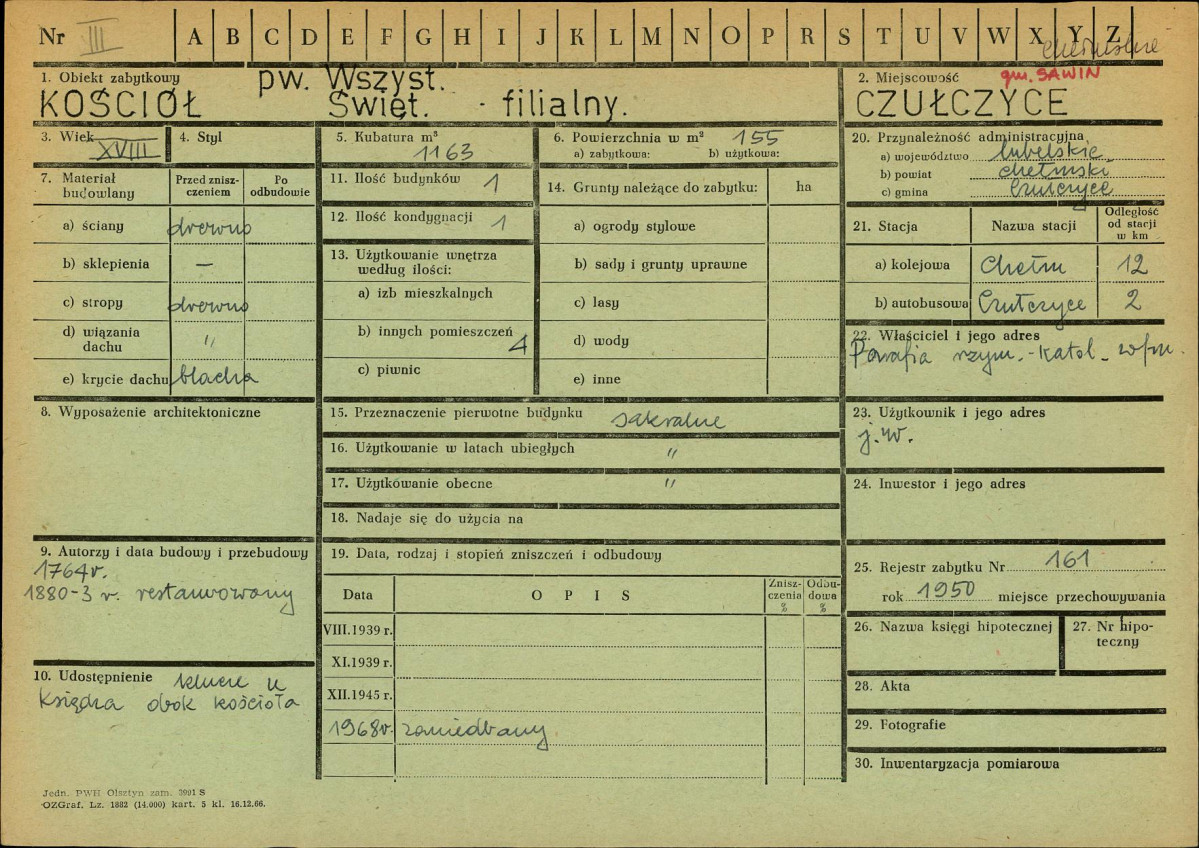 Nr III A B C D E F G H I J K L M N O P R S T U V W X Y Z
chełmskie
1. Obiekt zabytkowy
KOŚCIÓŁ pw. Wszyst.
Święt. - filialny.
2. Miejscowość gm. SAWIN
CZUŁCZYCE
3. Wiek XVIII
4. Styl
5. Kubatura m³
1163
6. Powierzchnia w m² 155
a) zabytkowa: b) użytkowa:
7. Materiał budowlany
Przed zniszczeniem
Po odbudowie
a) ściany drewno
b) sklepienia —
c) stropy drewno
d) wiązania dachu "
e) krycie dachu blacha
8. Wyposażenie architektoniczne
9. Autorzy i data budowy i przebudowy
1764 r.
1880-3 r. restaurowany
10. Udostępnienie klucze u
księdza obok kościoła
11. Ilość budynków 1
12. Ilość kondygnacji 1
13. Użytkowanie wnętrza
według ilości:
a) izb mieszkalnych
b) innych pomieszczeń 4
c) piwnic
14. Grunty należące do zabytku: ha
a) ogrody stylowe
b) sady i grunty uprawne
c) lasy
d) wody
e) inne
15. Przeznaczenie pierwotne budynku sakralne
16. Użytkowanie w latach ubiegłych "
17. Użytkowanie obecne "
18. Nadaje się do użycia na
19. Data, rodzaj i stopień zniszczeń i odbudowy
Data O P I S Zniszczenia % Odbudowa %
VIII.1939 r.
XI.1939 r.
XII.1945 r.
1968 r. zaniedbany
20. Przynależność administracyjna
a) województwo lubelskie
b) powiat chełmski
c) gmina Czułczyce
21. Stacja Nazwa stacji Odległość od stacji w km
a) kolejowa Chełm 12
b) autobusowa Czułczyce 2
22. Właściciel i jego adres
Parafia rzym.-katol. w/m.
23. Użytkownik i jego adres
j.w.
24. Inwestor i jego adres
25. Rejestr zabytku Nr 161
rok 1950 miejsce przechowywania
26. Nazwa księgi hipotecznej
27. Nr hipoteczny
28. Akta
29. Fotografie
30. Inwentaryzacja pomiarowa
Jedn. PWH Olsztyn zam. 3991 S
OZGraf. Lz. 1882 (14.000) kart. 5 kl. 16.12.66.